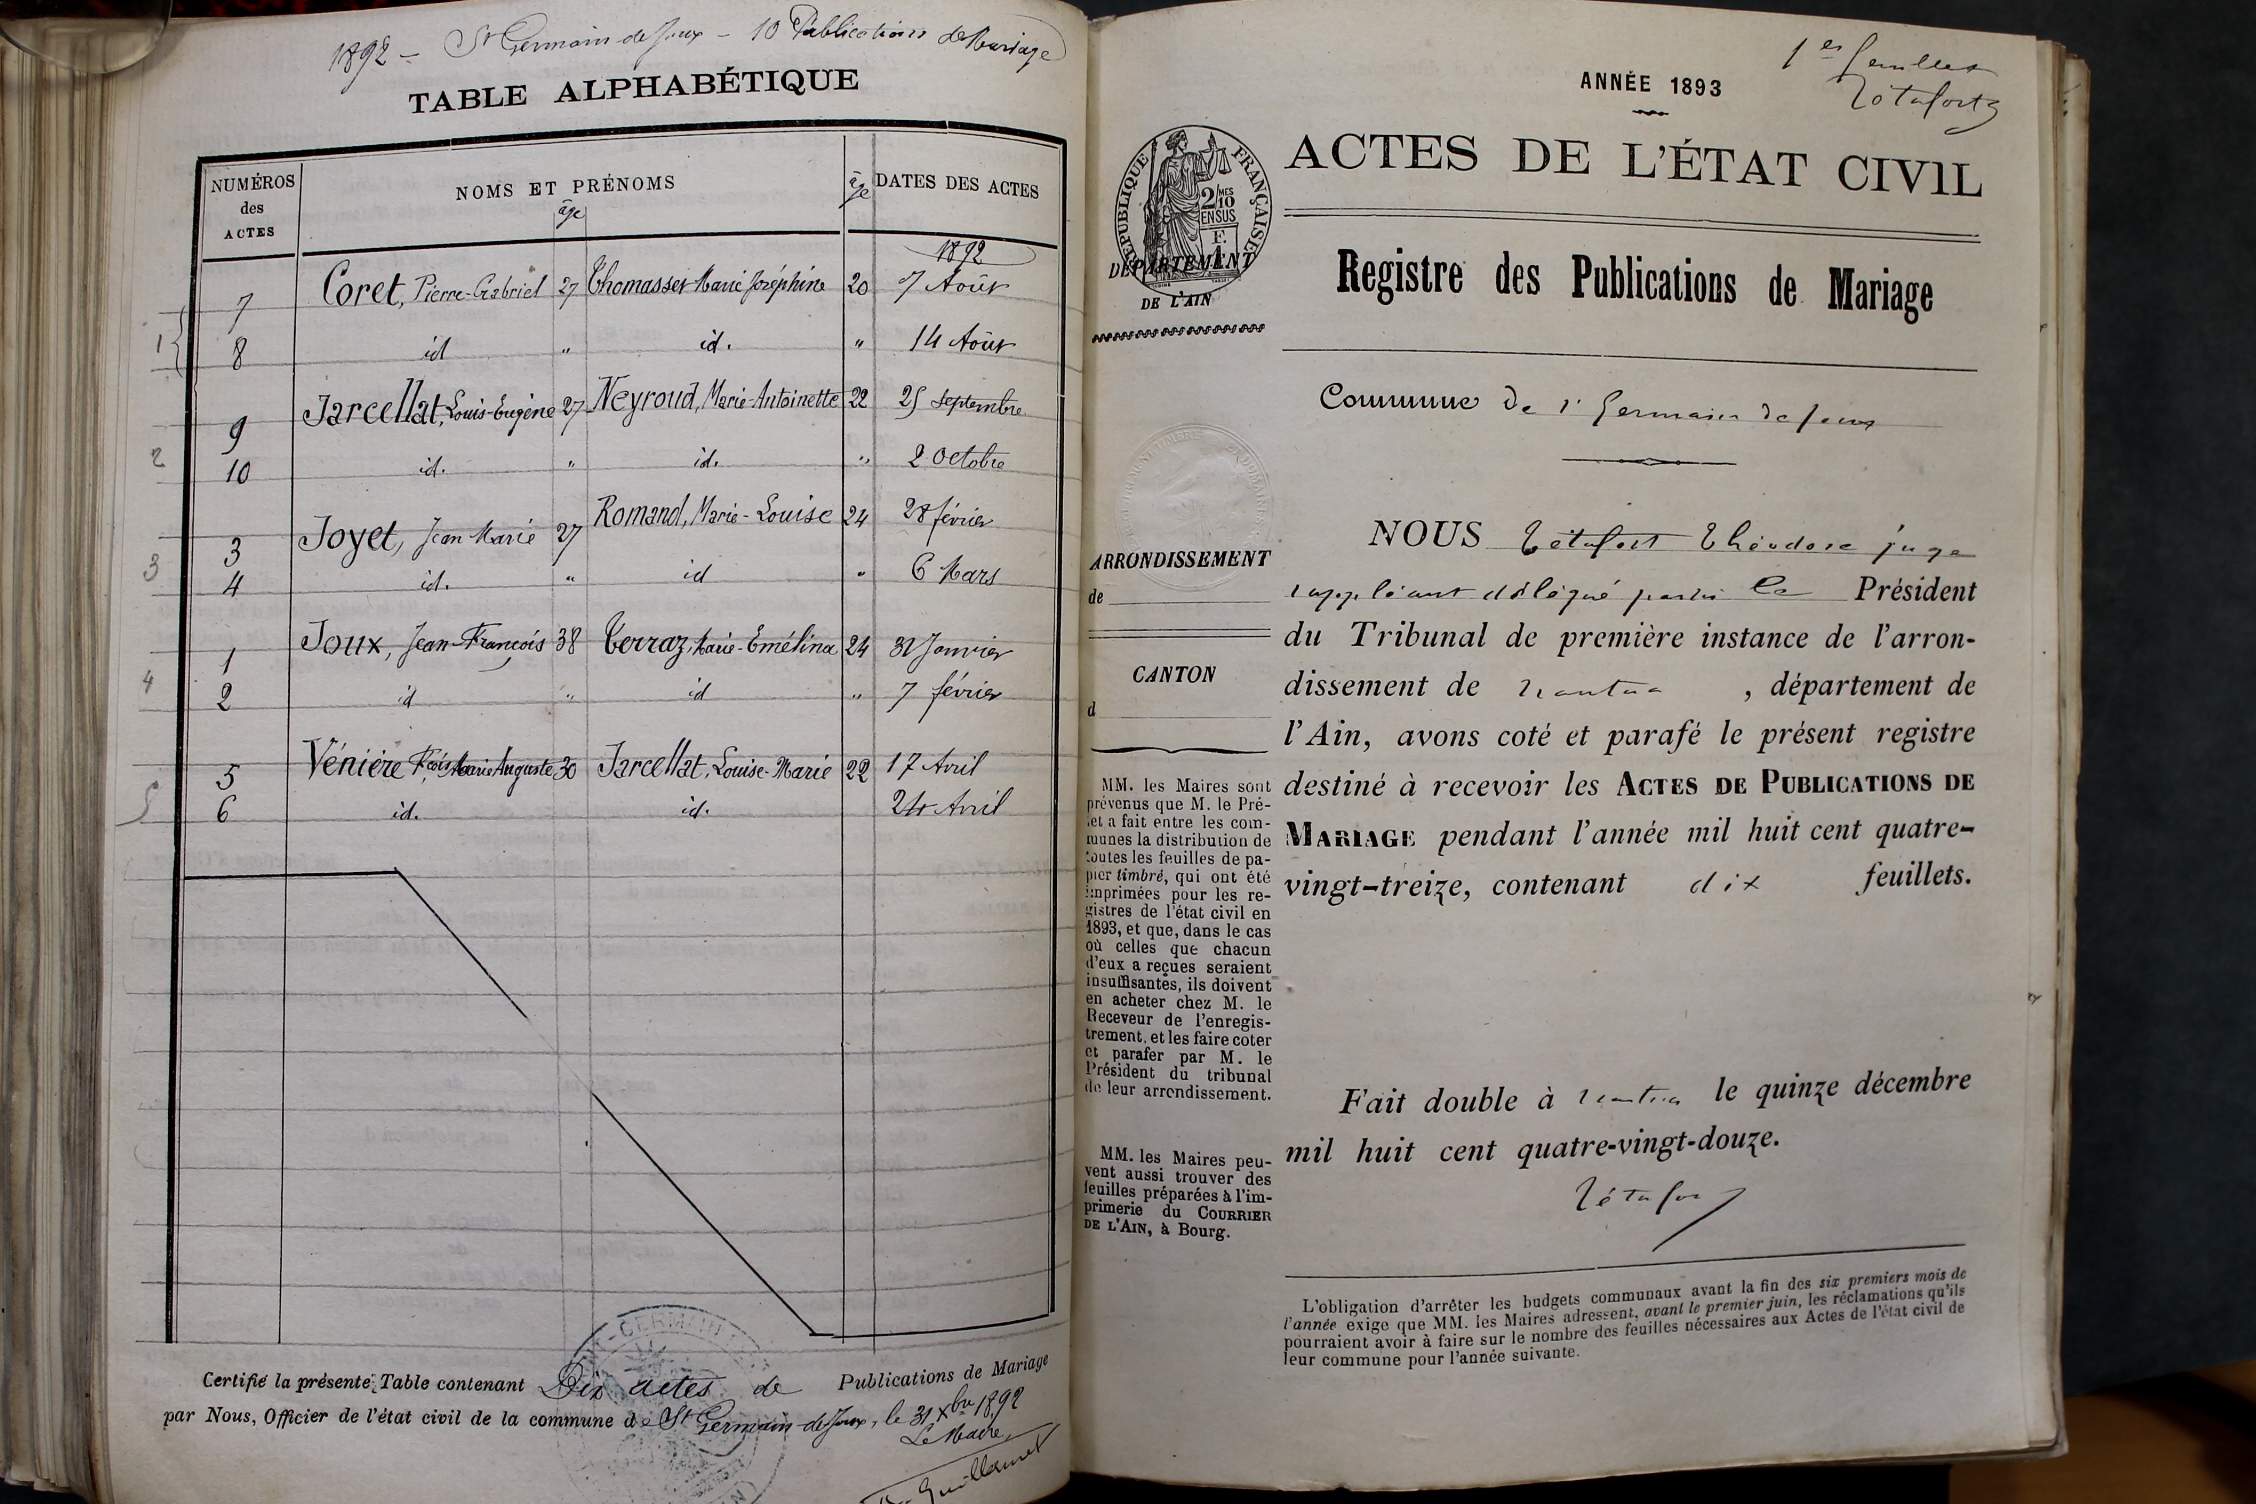 1892 – St Germain de Joux – 10 Publications de Mariage
TABLE ALPHABÉTIQUE
NUMÉROS des ACTES | NOMS ET PRÉNOMS | âge | âge | DATES DES ACTES
1892
7 Coret, Pierre-Gabriel 27 Thomasset Marie Joséphine 20 7 Août
1 8 id " id. " 14 Août
9 Jarcellat, Louis-Eugène 27 Neyroud, Marie-Antoinette 22 25 septembre
2 10 id. " id. " 2 Octobre
3 Joyet, Jean Marie 27 Romand, Marie-Louise 24 28 février
3 4 id. " id " 6 Mars
1 Joux, Jean-François 38 Terraz, Marie-Emélina 24 31 Janvier
4 2 id " id " 7 février
5 Vénière Fçois Marie Auguste 30 Jarcellat, Louise-Marie 22 17 Avril
5 6 id. id. 24 Avril
Certifié la présente Table contenant Dix actes de Publications de Mariage
par Nous, Officier de l'état civil de la commune de St Germain-de-Joux, le 31 Xbre 1892
Le Maire,
Guillaumet
1er feuillet
Tétafort
ANNÉE 1893
ACTES DE L'ÉTAT CIVIL
RÉPUBLIQUE FRANÇAISE
2/10 MES
EN SUS
F.
1
DÉPARTEMENT
DE L'AIN
Registre des Publications de Mariage
Commune de St Germain de Joux
ARRONDISSEMENT
de
CANTON
d
MM. les Maires sont
prévenus que M. le Pré-
fet a fait entre les com-
munes la distribution de
toutes les feuilles de pa-
pier timbré, qui ont été
imprimées pour les re-
gistres de l'état civil en
1893, et que, dans le cas
où celles que chacun
d'eux a reçues seraient
insuffisantes, ils doivent
en acheter chez M. le
Receveur de l'enregis-
trement, et les faire coter
et parafer par M. le
Président du tribunal
de leur arrondissement.
MM. les Maires peu-
vent aussi trouver des
feuilles préparées à l'im-
primerie du COURRIER
DE L'AIN, à Bourg.
NOUS Tétafort Théodore juge
suppléant délégué par le Président
du Tribunal de première instance de l'arron-
dissement de Nantua , département de
l'Ain, avons coté et parafé le présent registre
destiné à recevoir les ACTES DE PUBLICATIONS DE
MARIAGE pendant l'année mil huit cent quatre-
vingt-treize, contenant dix feuillets.
Fait double à Nantua le quinze décembre
mil huit cent quatre-vingt-douze.
Tétafort
L'obligation d'arrêter les budgets communaux avant la fin des six premiers mois de
l'année exige que MM. les Maires adressent, avant le premier juin, les réclamations qu'ils
pourraient avoir à faire sur le nombre des feuilles nécessaires aux Actes de l'état civil de
leur commune pour l'année suivante.